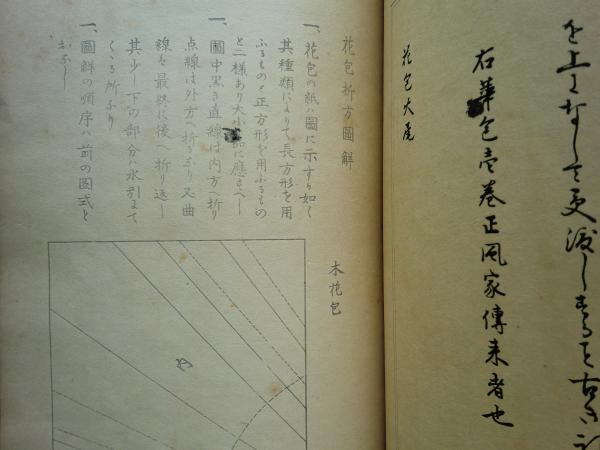 を上になして更渡しする古き
右華包壱巻正風家傳来者也
花包大尾
花包折方圖解
一、花包の紙ハ圖に示すか如く
其種類によりて長方形を用
ふるものと正方形を用ふるもの
と二様あり大小品に應すへし
一、圖中黒き直線は内方へ折り
点線は外方へ折るなり又曲
線を最終に後へ折り返し
其少し下の部分ハ水引まて
くゝる所なり
一、圖解の順序ハ前の圖式と
おなし
木花包